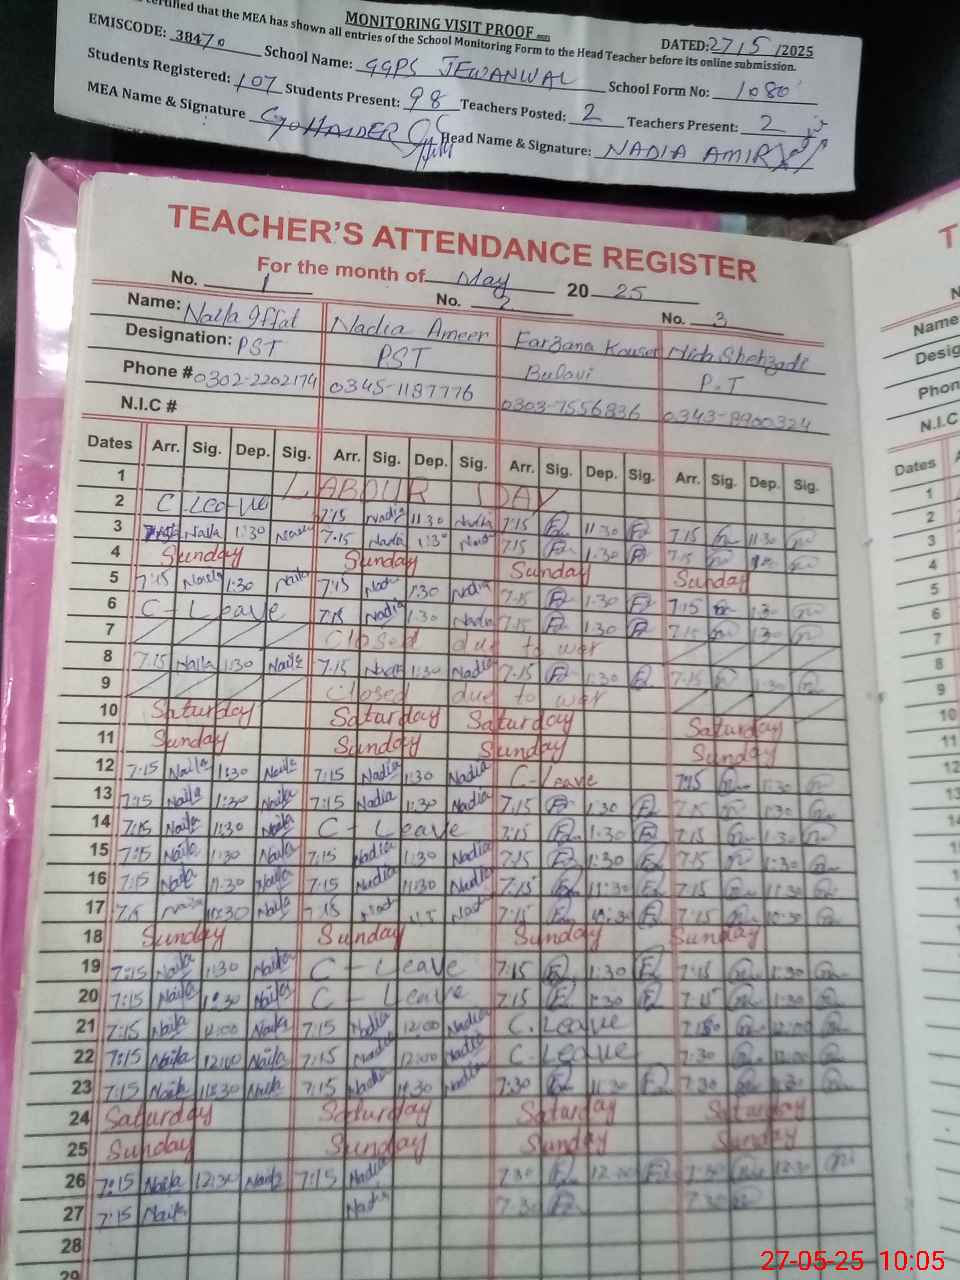 MONITORING VISIT PROOF
certified that the MEA has shown all entries of the School Monitoring Form to the Head Teacher before its online submission.
DATED: 27/5/2025
EMISCODE: 38470 School Name: GGPS JEWANWAL School Form No: 1080
Students Registered: 107 Students Present: 98 Teachers Posted: 2 Teachers Present: 2
MEA Name & Signature Head Name & Signature: NADIA AMIR
TEACHER'S ATTENDANCE REGISTER
For the month of May 2025
No. 1 No. 2 No. 3
Name: Naila Iffat Nadia Ameer Farzana Kouser Hida Shehzadi
Designation: PST PST Bulavi P.T
Phone # 0302-2202174 0345-1187776 0303-7556836 0343-8900324
N.I.C #
Dates Arr. Sig. Dep. Sig. Arr. Sig. Dep. Sig. Arr. Sig. Dep. Sig. Arr. Sig. Dep. Sig.
1 LABOUR DAY
2 C.Leave 7:15 Nadia 11:30 Nadia 7:15 11:30 7:15 11:30
3 Naila 1:30 7:15 Nadia 1:30 7:15 1:30 7:15
4 Sunday Sunday Sunday Sunday
5 7:15 Naila 1:30 Naila 7:15 1:30 Nadia 7:15 1:30 7:15 1:30
6 C-Leave 7:15 Nadia 1:30 Nadia 7:15 1:30 7:15 1:30
7 Closed due to war
8 7:15 Naila 1:30 Naila 7:15 Nadia 1:30 Nadia 7:15 1:30 7:15 1:30
9 Closed due to war
10 Saturday Saturday Saturday Saturday
11 Sunday Sunday Sunday Sunday
12 7:15 Naila 1:30 Naila 7:15 Nadia 1:30 Nadia C-Leave 7:15 1:30
13 7:15 Naila 1:30 Naila 7:15 Nadia 1:30 Nadia 7:15 1:30 7:15 1:30
14 7:15 Naila 1:30 Naila C-Leave 7:15 1:30 7:15 1:30
15 7:15 Naila 1:30 Naila 7:15 Nadia 1:30 Nadia 7:15 1:30 7:15 1:30
16 7:15 Naila 11:30 Naila 7:15 Nadia 11:30 Nadia 7:15 11:30 7:15 11:30
17 Naila Naila 7:15 7:15 7:15 10:30
18 Sunday Sunday Sunday Sunday
19 7:15 Naila 1:30 Naila C-Leave 7:15 1:30 7:15 1:30
20 7:15 Naila 1:30 Naila C-Leave 7:15 1:30 7:15 1:30
21 7:15 Naila 12:00 Naila 7:15 Nadia 12:00 Nadia C.Leave 12:00
22 7:15 Naila 12:00 Naila 7:15 Nadia 12:00 Nadia C-Leave 7:30 12:00
23 7:15 Naila 11:30 Naila 7:15 Nadia 11:30 Nadia 7:30 11:30 7:30
24 Saturday Saturday Saturday Saturday
25 Sunday Sunday Sunday Sunday
26 7:15 Naila 12:30 Naila 7:15 Nadia 7:30 7:30 12:30
27 7:15 Naila Nadia 7:30 7:30
28
29
27-05-25 10:05